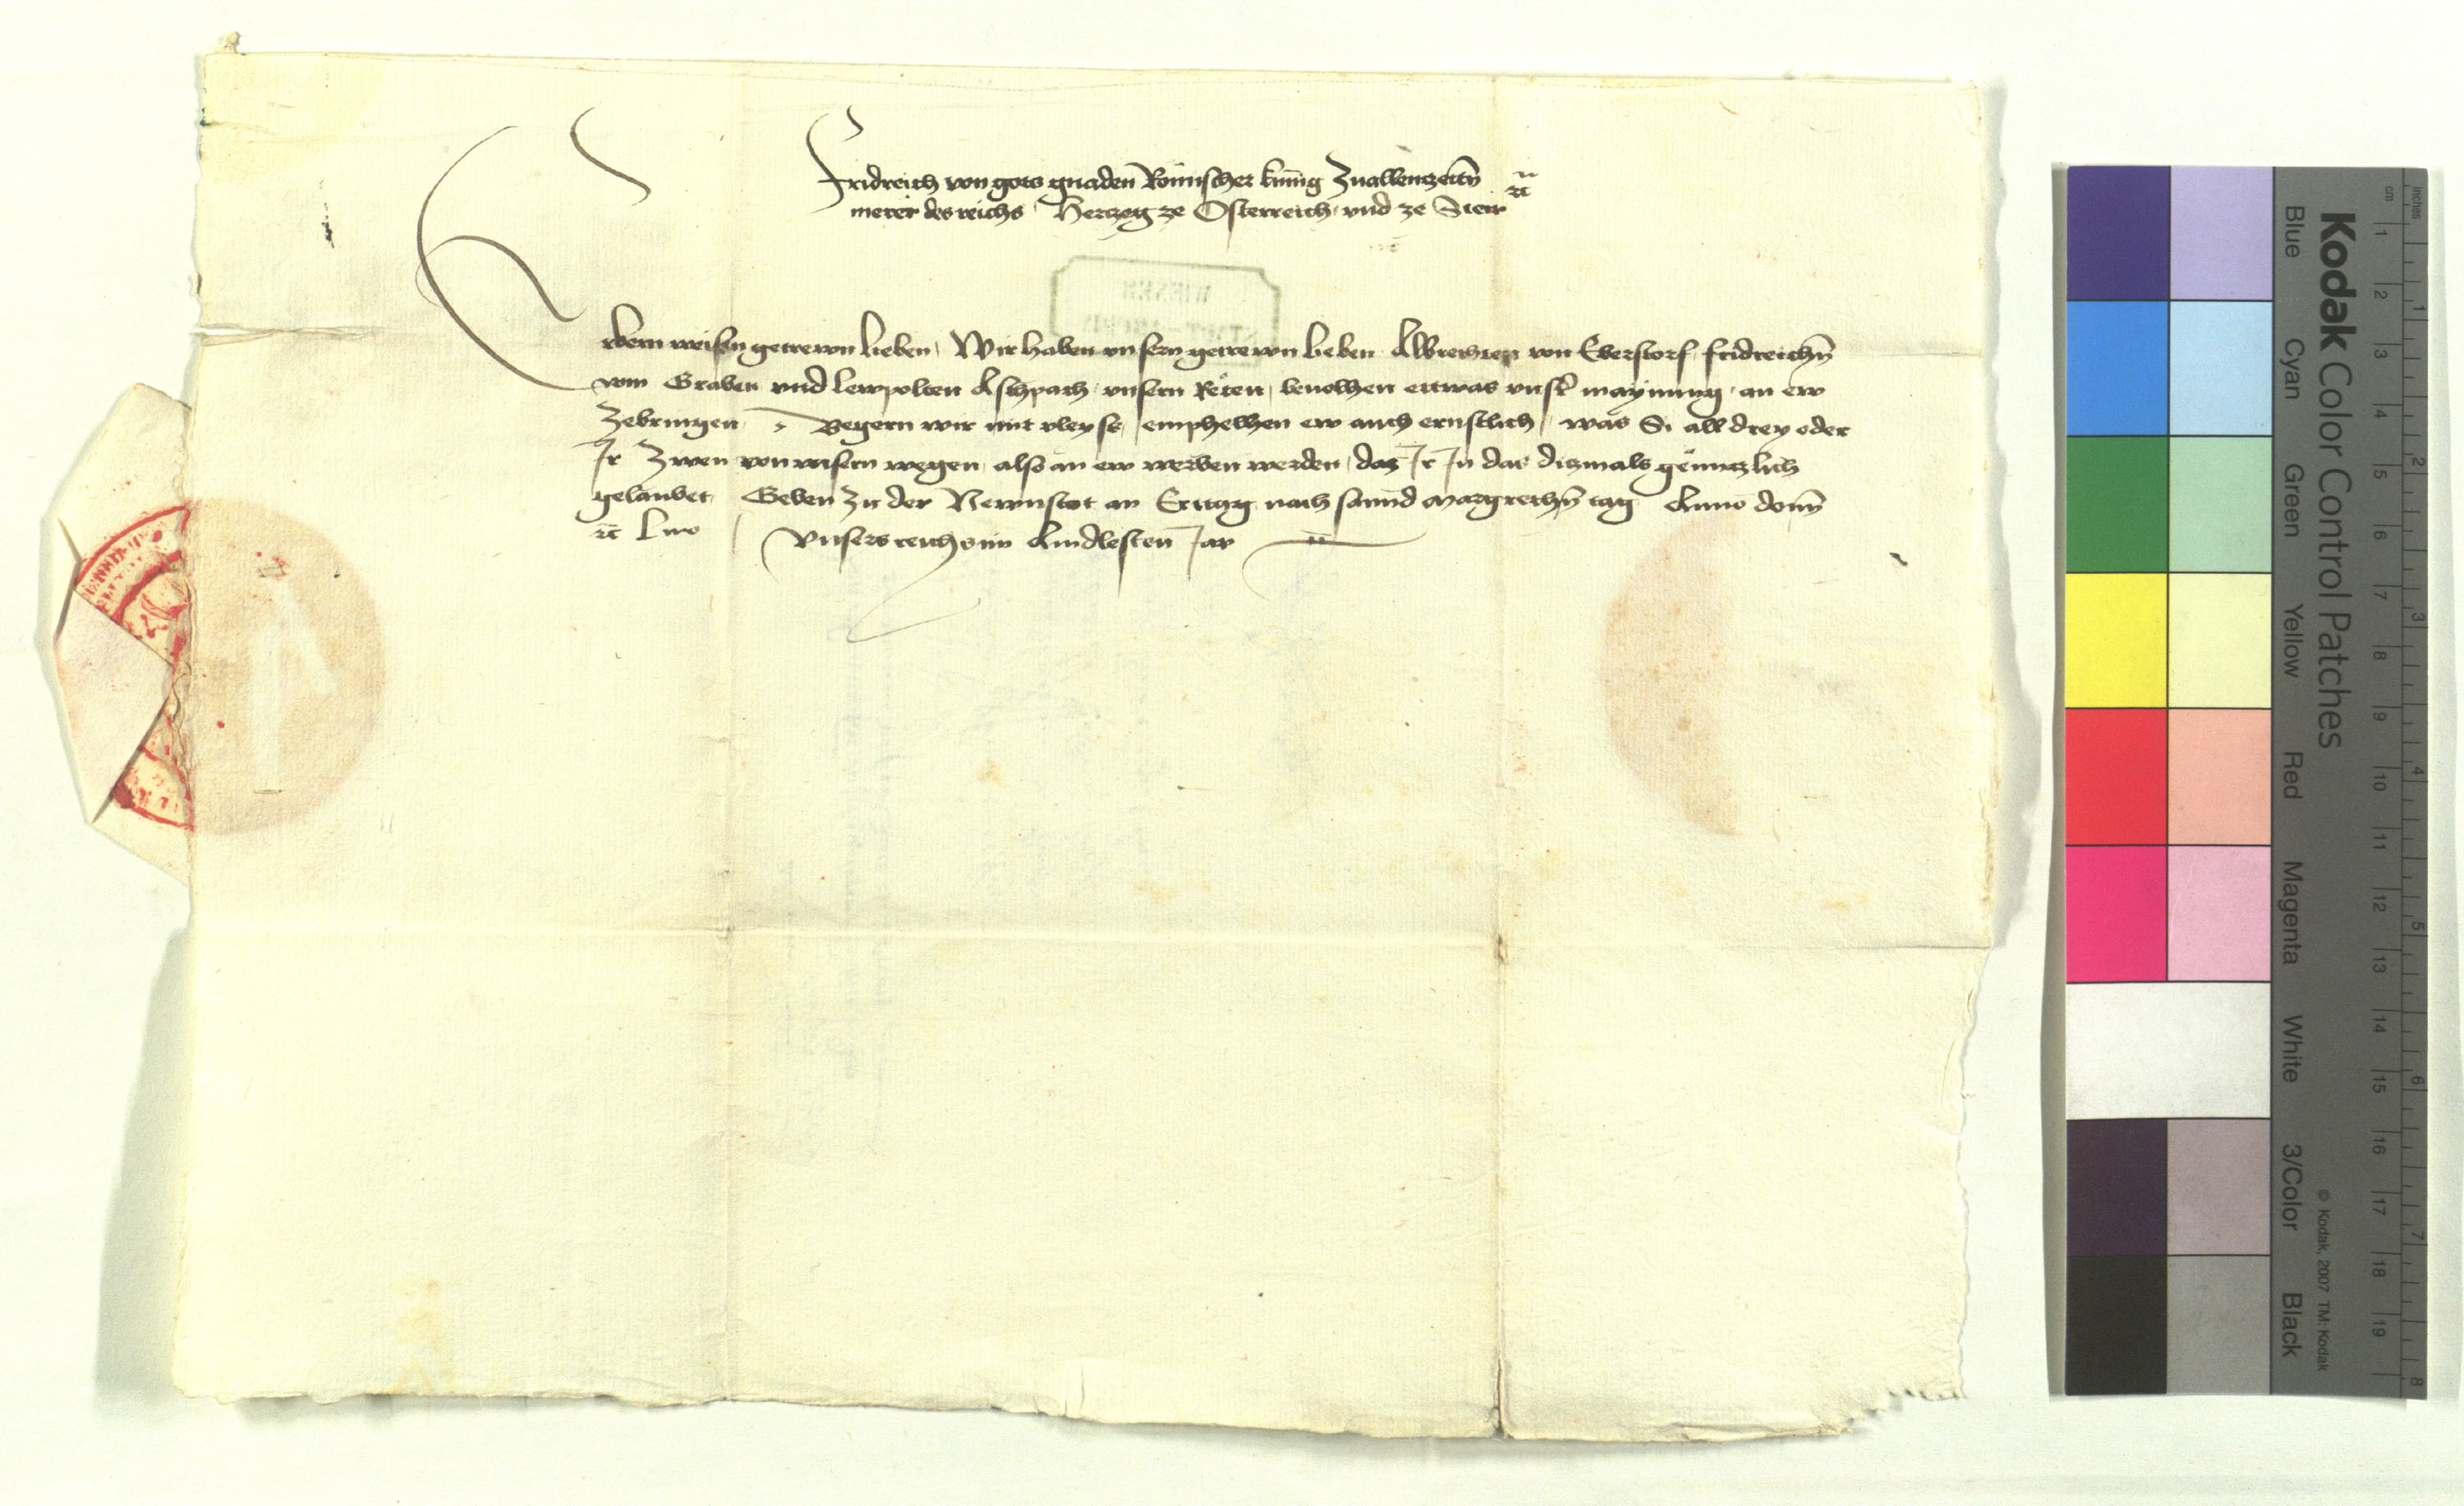 Fridreich von gots gnaden Römischer kunig Zuallenczeitn̄
merer des reichs Herczog ze Österreich vnd ze Steir ꝛc̄
Erbern weisen getrewn lieben, Wir haben vnsern getrewn lieben Albrechten von Eberstorf fridreichn̄
vom Graben vnd lewpolten Aschpach, vnsern Reten, beuolhen ettwas vnsr̄ maynung, an ew
Zebringen, Begern wir mit vleyss, emphelhen ew auch ernstlich, was Si all drey oder
Ir Zwen von vnsern wegen, also an ew werben werden, daz Ir In das diczmals genntzlich
gelaubet, Geben zu der Newnstat an Eritag nach sannd Margrethn̄ tag Anno domī
ꝛc̄ Vnsers reichs im Aindlesten Jar
Kodak Color Control Patches
Blue Cyan Green Yellow Red Magenta White 3/Color Black
© Kodak, 2007 TM: Kodak
cm 1 2 3 4 5 6 7 8 9 10 11 12 13 14 15 16 17 18 19
inches 1 2 3 4 5 6 7 8